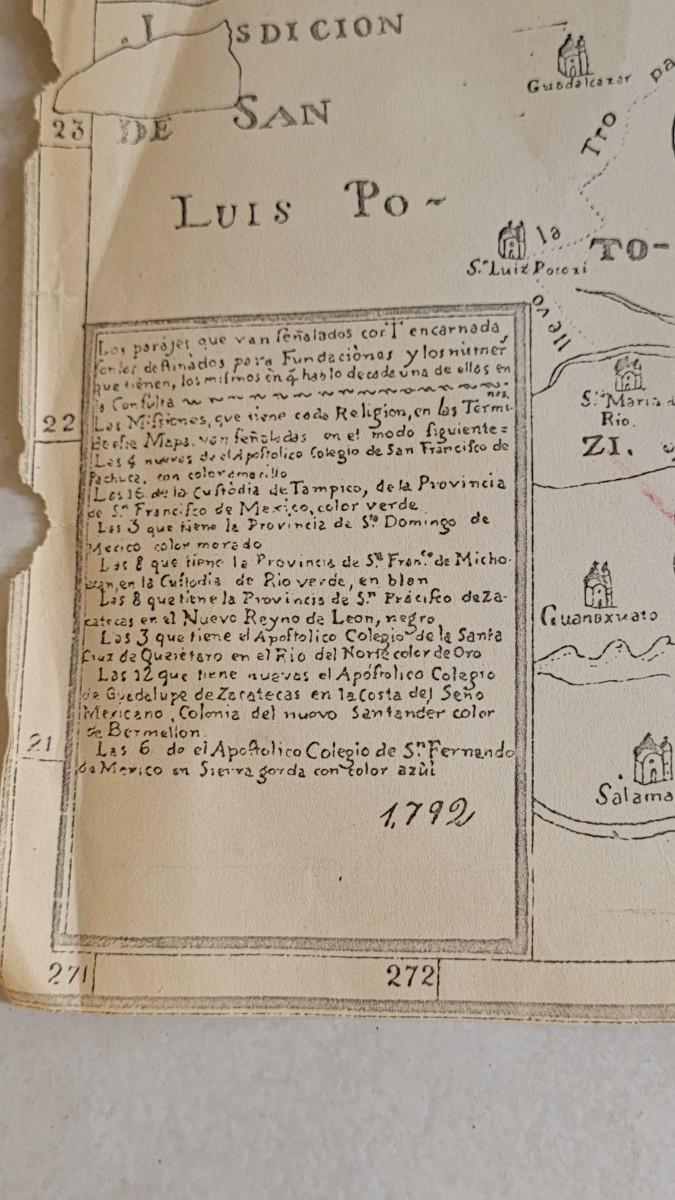 SDICION
Guadalcazar
pa
23
DE SAN
Tro
LUIS PO-
la
TO-
S.n Luiz Potozi
llevo
Los parajes que van señalados con T encarnada,
son los destinados para Fundaciones y los numer
que tienen, los mismos en q̃ hablo de cada una de ellas en
la Consulta
nos,
22
Las Missiones, que tiene cada Religion, en los Termi-
de este Mapa. van señaladas en el modo siguiente=
Las 4 nuevas de el Apostolico Colegio de San Francisco de
Pachuca, con color amarillo
Las 15 de la Custodia de Tampico, de la Provincia
de S.n Francisco de Mexico, color verde
Las 3 que tiene la Provincia de S.to Domingo de
Mexico color morado
Las 8 que tiene la Provincia de S.n Fran.co de Micho-
acan, en la Custodia de Rio verde, en blan
Las 8 que tiene la Provincia de S.n Frãcisco de Za-
catecas en el Nuevo Reyno de Leon, negro
Las 3 que tiene el Apostolico Colegio de la Santa
Cruz de Queretaro en el Rio del Norte color de Oro
Las 12 que tiene nuevas el Apostolico Colegio
de Guadelupe de Zacatecas en la Costa del Seño
Mexicano, Colonia del nuovo Santander color
de Bermellon.
21
Las 6 de el Apostolico Colegio de S.n Fernando
de Mexico en Sierra gorda con color azul
1,792
S.ta Maria d
Rio.
ZI.
Guanaxuato
Salama
271
272